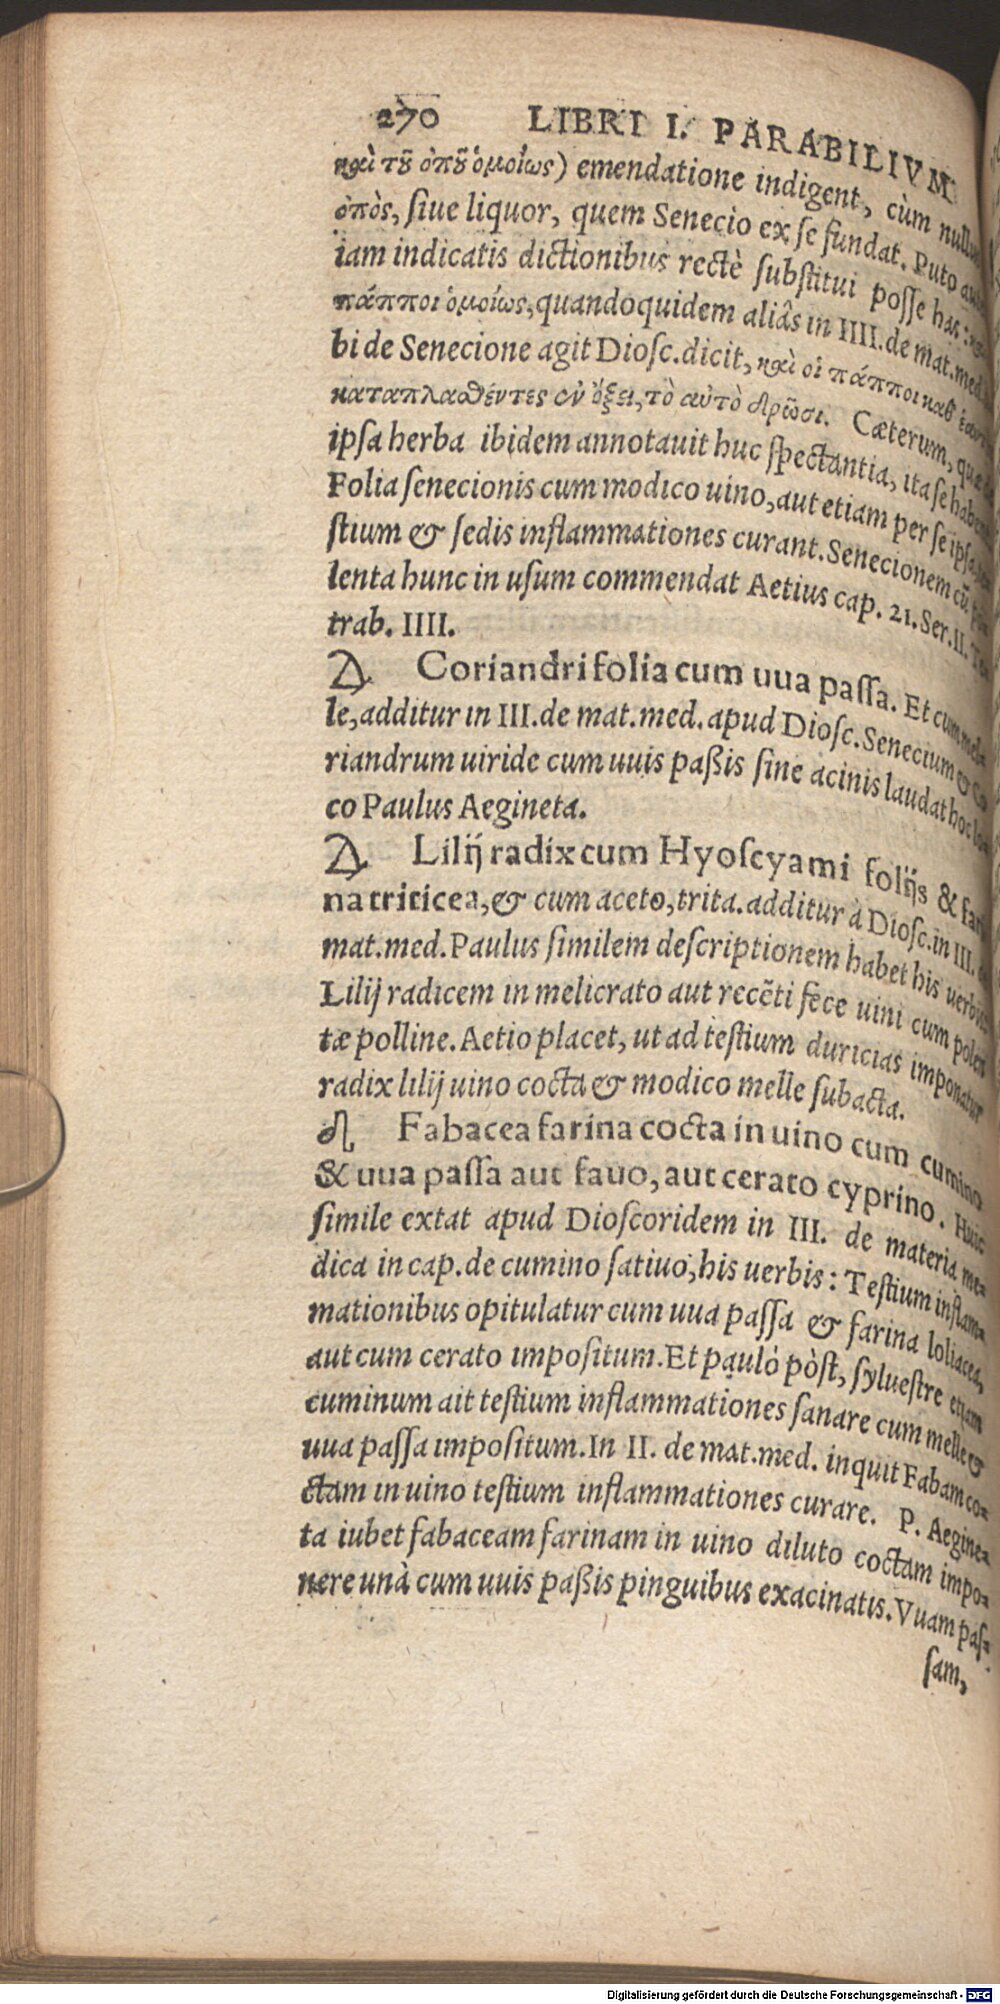 270 LIBRI I. PARABILIVM
καὶ τοῦ ὀποῦ ὁμοίως) emendatione indigent, cùm
ὀπὸς, siue liquor, quem Senecio ex se fundat. Puto
iam indicatis dictionibus rectè substitui posse has:
πάπποι ὁμοίως, quandoquidem aliâs in IIII. de mat. med.
bi de Senecione agit Diosc. dicit, καὶ οἱ πάπποι καθ'
καταπλασθέντες σὺν ὄξει, τὸ αὐτὸ δρῶσι. Cæterum,
ipsa herba ibidem annotauit huc spectantia, ita se
Folia senecionis cum modico uino, aut etiam per se ipsa,
stium & sedis inflammationes curant. Senecionem cũ
lenta hunc in usum commendat Aetius cap. 21. Ser. II.
trab. IIII.
Δ Coriandri folia cum uua passa. Et cum
le, additur in III. de mat. med. apud Diosc. Senecium & Co
riandrum uiride cum uuis paßis sine acinis laudat hoc lo-
co Paulus Aegineta.
Δ Lilij radix cum Hyoscyami folijs & fari
na triticea, & cum aceto, trita. additur à Diosc. in III.
mat. med. Paulus similem descriptionem habet his uerbis
Lilij radicem in melicrato aut recẽti fece uini cum polen
tæ polline. Aetio placet, ut ad testium duricias imponatur
radix lilij uino cocta & modico melle subacta.
Fabacea farina cocta in uino cum cumino
& uua passa aut fauo, aut cerato cyprino. Huic
simile extat apud Dioscoridem in III. de materia me-
dica in cap. de cumino satiuo, his uerbis: Testium inflam-
mationibus opitulatur cum uua passa & farina loliacea,
aut cum cerato impositum. Et pauló pòst, syluestre etiam
cuminum ait testium inflammationes sanare cum melle &
uua passa impositum. In II. de mat. med. inquit Fabam co-
ctam in uino testium inflammationes curare. P. Aegine-
ta iubet fabaceam farinam in uino diluto coctam impo-
nere unà cum uuis paßis pinguibus exacinatis. Vuam pas-
sam,
Digitalisierung gefördert durch die Deutsche Forschungsgemeinschaft - DFG